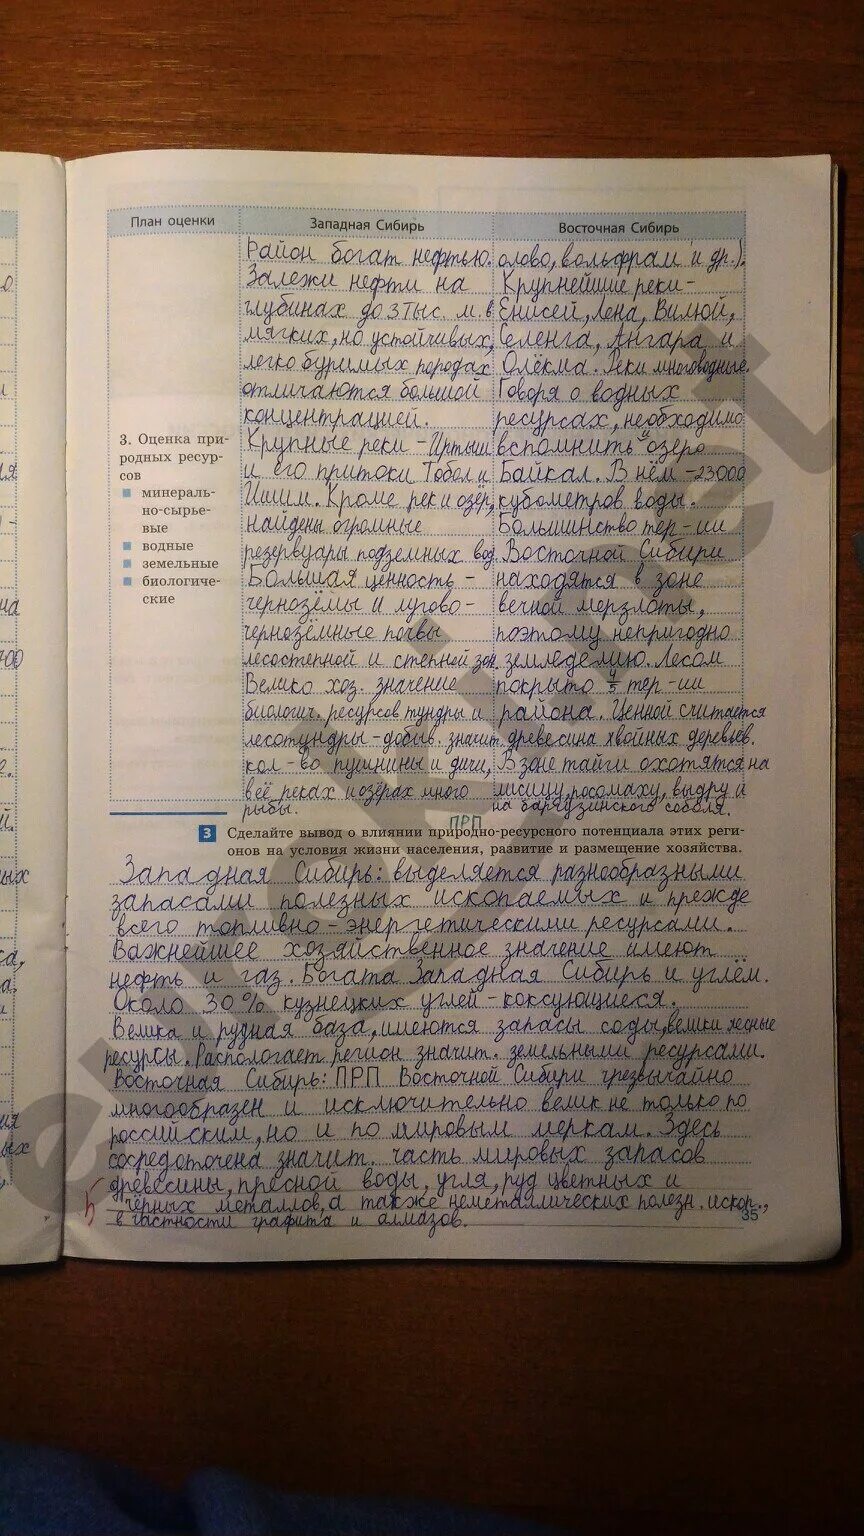 План оценки
Западная Сибирь
Восточная Сибирь
3. Оценка при-
родных ресур-
сов
минераль-
но-сырье-
вые
водные
земельные
биологиче-
ские
Район богат нефтью.
Залежи нефти на
глубинах до 3 тыс. м. в
мягких, но устойчивых,
легко буримых породах
отличаются большой
концентрацией.
Крупные реки - Иртыш
и его притоки Тобол и
Ишим. Кроме рек и озёр,
найдены огромные
резервуары подземных вод
Большая ценность -
чернозёмы и лугово-
чернозёмные почвы
лесостепной и степной зон.
Велико хоз. значение
биологич. ресурсов тундры и
лесотундры - добыв. значит.
кол-во пушнины и дичи,
в её реках и озёрах много
рыбы.
олово, вольфрам и др.).
Крупнейшие реки-
Енисей, Лена, Вилюй,
Селенга, Ангара и
Олёкма. Реки многоводные.
Говоря о водных
ресурсах, необходимо
вспомнить и озеро
Байкал. В нём - 23000
кубометров воды.
Большинство тер-ии
Восточной Сибири
находятся в зоне
вечной мерзлоты,
поэтому непригодно
земледелию. Лесом
покрыто 4/5 тер-ии
района. Ценной считается
древесина хвойных деревьев.
В зоне тайги охотятся на
лисицу, росомаху, выдру и
на баргузинского соболя.
ПРП
3 Сделайте вывод о влиянии природно-ресурсного потенциала этих реги-
онов на условия жизни населения, развитие и размещение хозяйства.
Западная Сибирь: выделяется разнообразными
запасами полезных ископаемых и прежде
всего топливно-энергетическими ресурсами.
Важнейшее хозяйственное значение имеют
нефть и газ. Богата Западная Сибирь и углём.
Около 30% кузнецких углей - коксующиеся.
Велика и рудная база, имеются запасы соды, велики лесные
ресурсы. Распологает регион значит. земельными ресурсами.
Восточная Сибирь: ПРП Восточной Сибири чрезвычайно
многообразен и исключительно велик не только по
российским, но и по мировым меркам. Здесь
сосредоточена значит. часть мировых запасов
древесины, пресной воды, угля, руд цветных и
чёрных металлов, а также неметаллических полезн. ископ.,
в частности графита и алмазов.
5
35